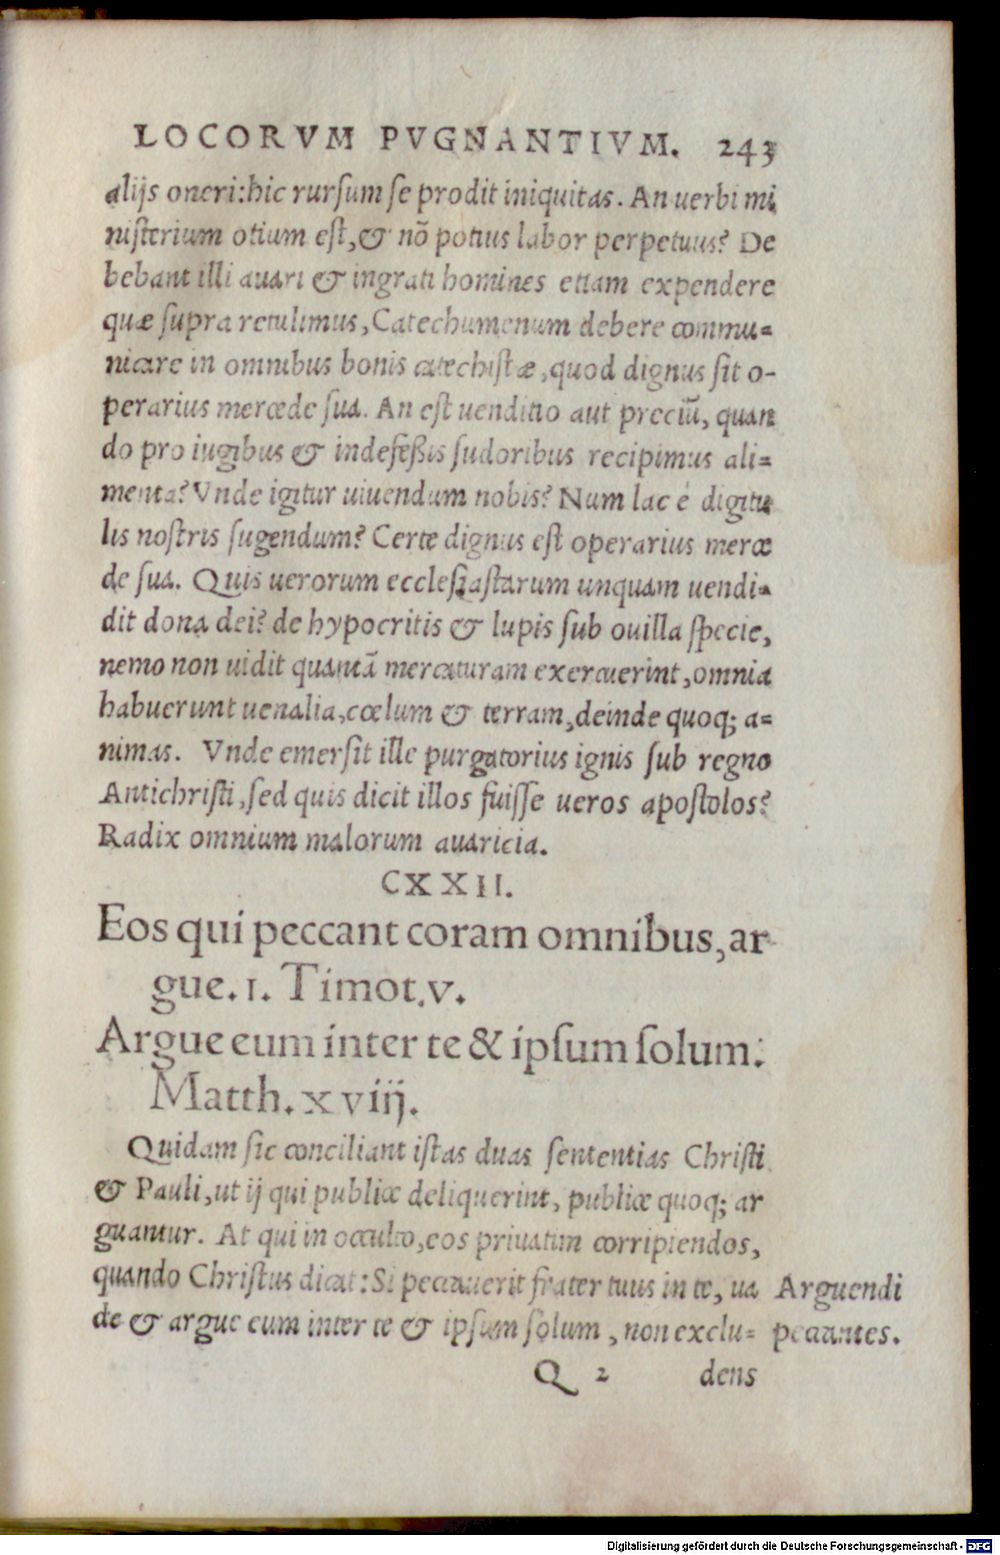 LOCORVM PVGNANTIVM. 243
alijs oneri: hic rursum se prodit iniquitas. An uerbi mi
nisterium otium est, & nō potius labor perpetuus? De
bebant illi auari & ingrati homines etiam expendere
quæ supra retulimus, Catechumenum debere commu-
nicare in omnibus bonis catechistæ, quod dignus sit o-
perarius mercede sua. An est uenditio aut preciū, quan
do pro iugibus & indefeßis sudoribus recipimus ali-
menta? Vnde igitur uiuendum nobis? Num lac è digitu
lis nostris sugendum? Certe dignus est operarius merce
de sua. Quis uerorum ecclesiastarum unquam uendi-
dit dona dei? de hypocritis & lupis sub ouilla specie,
nemo non uidit quantā mercaturam exercuerint, omnia
habuerunt uenalia, cœlum & terram, deinde quoq; a-
nimas. Vnde emersit ille purgatorius ignis sub regno
Antichristi, sed quis dicit illos fuisse ueros apostolos?
Radix omnium malorum auaricia.
CXXII.
Eos qui peccant coram omnibus, ar
gue. 1. Timot. v.
Argue eum inter te & ipsum solum.
Matth. xviij.
Quidam sic conciliant istas duas sententias Christi
& Pauli, ut ij qui publice deliquerint, publice quoq; ar
guantur. At qui in occulto, eos priuatim corripiendos,
quando Christus dicat: Si peccauerit frater tuus in te, ua
de & argue eum inter te & ipsum solum, non exclu-
Arguendi
peccantes.
Q 2 dens
Digitalisierung gefördert durch die Deutsche Forschungsgemeinschaft - DFG